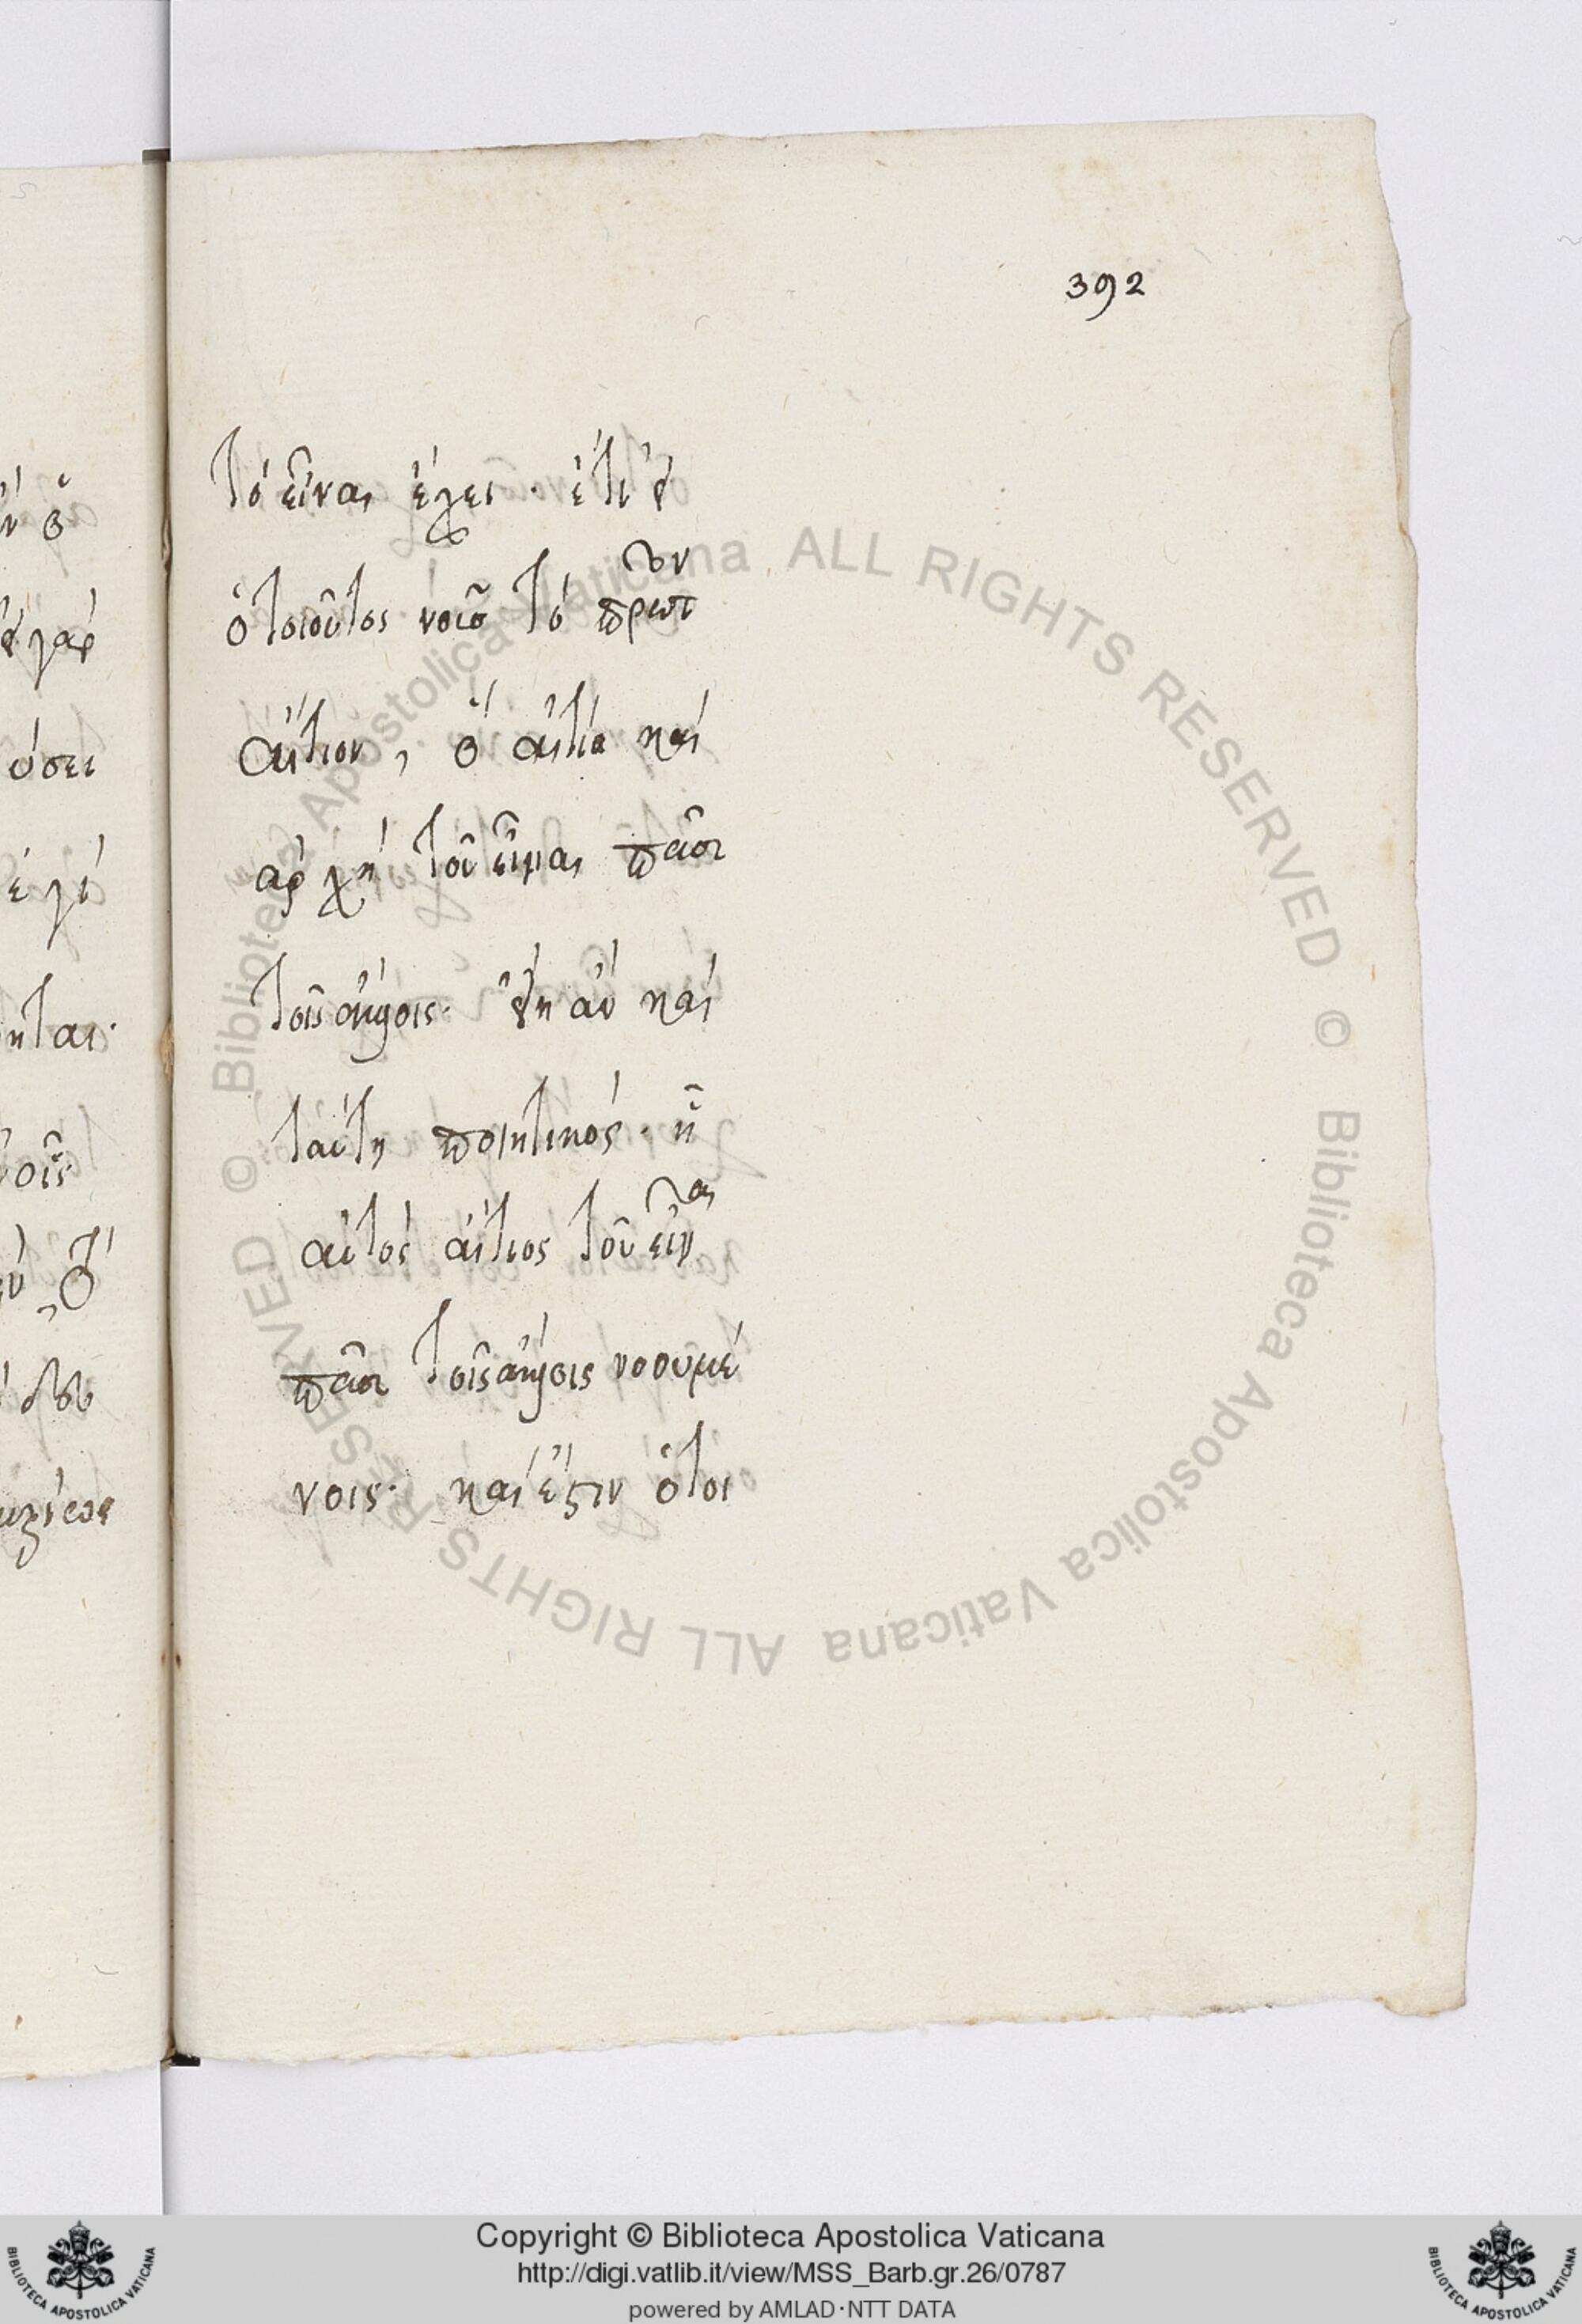 392
τὸ εἶναι ἔχει· ἔτι εἰ
ὁ τοιοῦτος νοῦς τὸ πρῶτον
αἴτιον, ὃ αἰτία καὶ
ἀρχὴ τοῦ εἶναι πᾶσι
τοῖς ἄλλοις· εἴη ἂν καὶ
ταύτῃ ποιητικός· ᾗ
αὐτὸς αἴτιος τοῦ εἶναι
πᾶσι τοῖς ἄλλοις νοουμέ
νοις· καὶ ἔστιν ὁ τοι
Copyright © Biblioteca Apostolica Vaticana
http://digi.vatlib.it/view/MSS_Barb.gr.26/0787
powered by AMLAD·NTT DATA
© Biblioteca Apostolica Vaticana ALL RIGHTS RESERVED
© Biblioteca Apostolica Vaticana ALL RIGHTS RESERVED
BIBLIOTECA APOSTOLICA VATICANA
BIBLIOTECA APOSTOLICA VATICANA